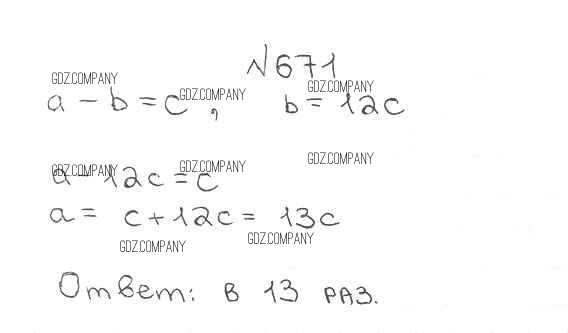 №671
GDZ.COMPANY
GDZ.COMPANY GDZ.COMPANY
a - b = c, b = 12c
GDZ.COMPANY GDZ.COMPANY GDZ.COMPANY
a - 12c = c
a = c + 12c = 13c
GDZ.COMPANY GDZ.COMPANY
Ответ: в 13 раз.